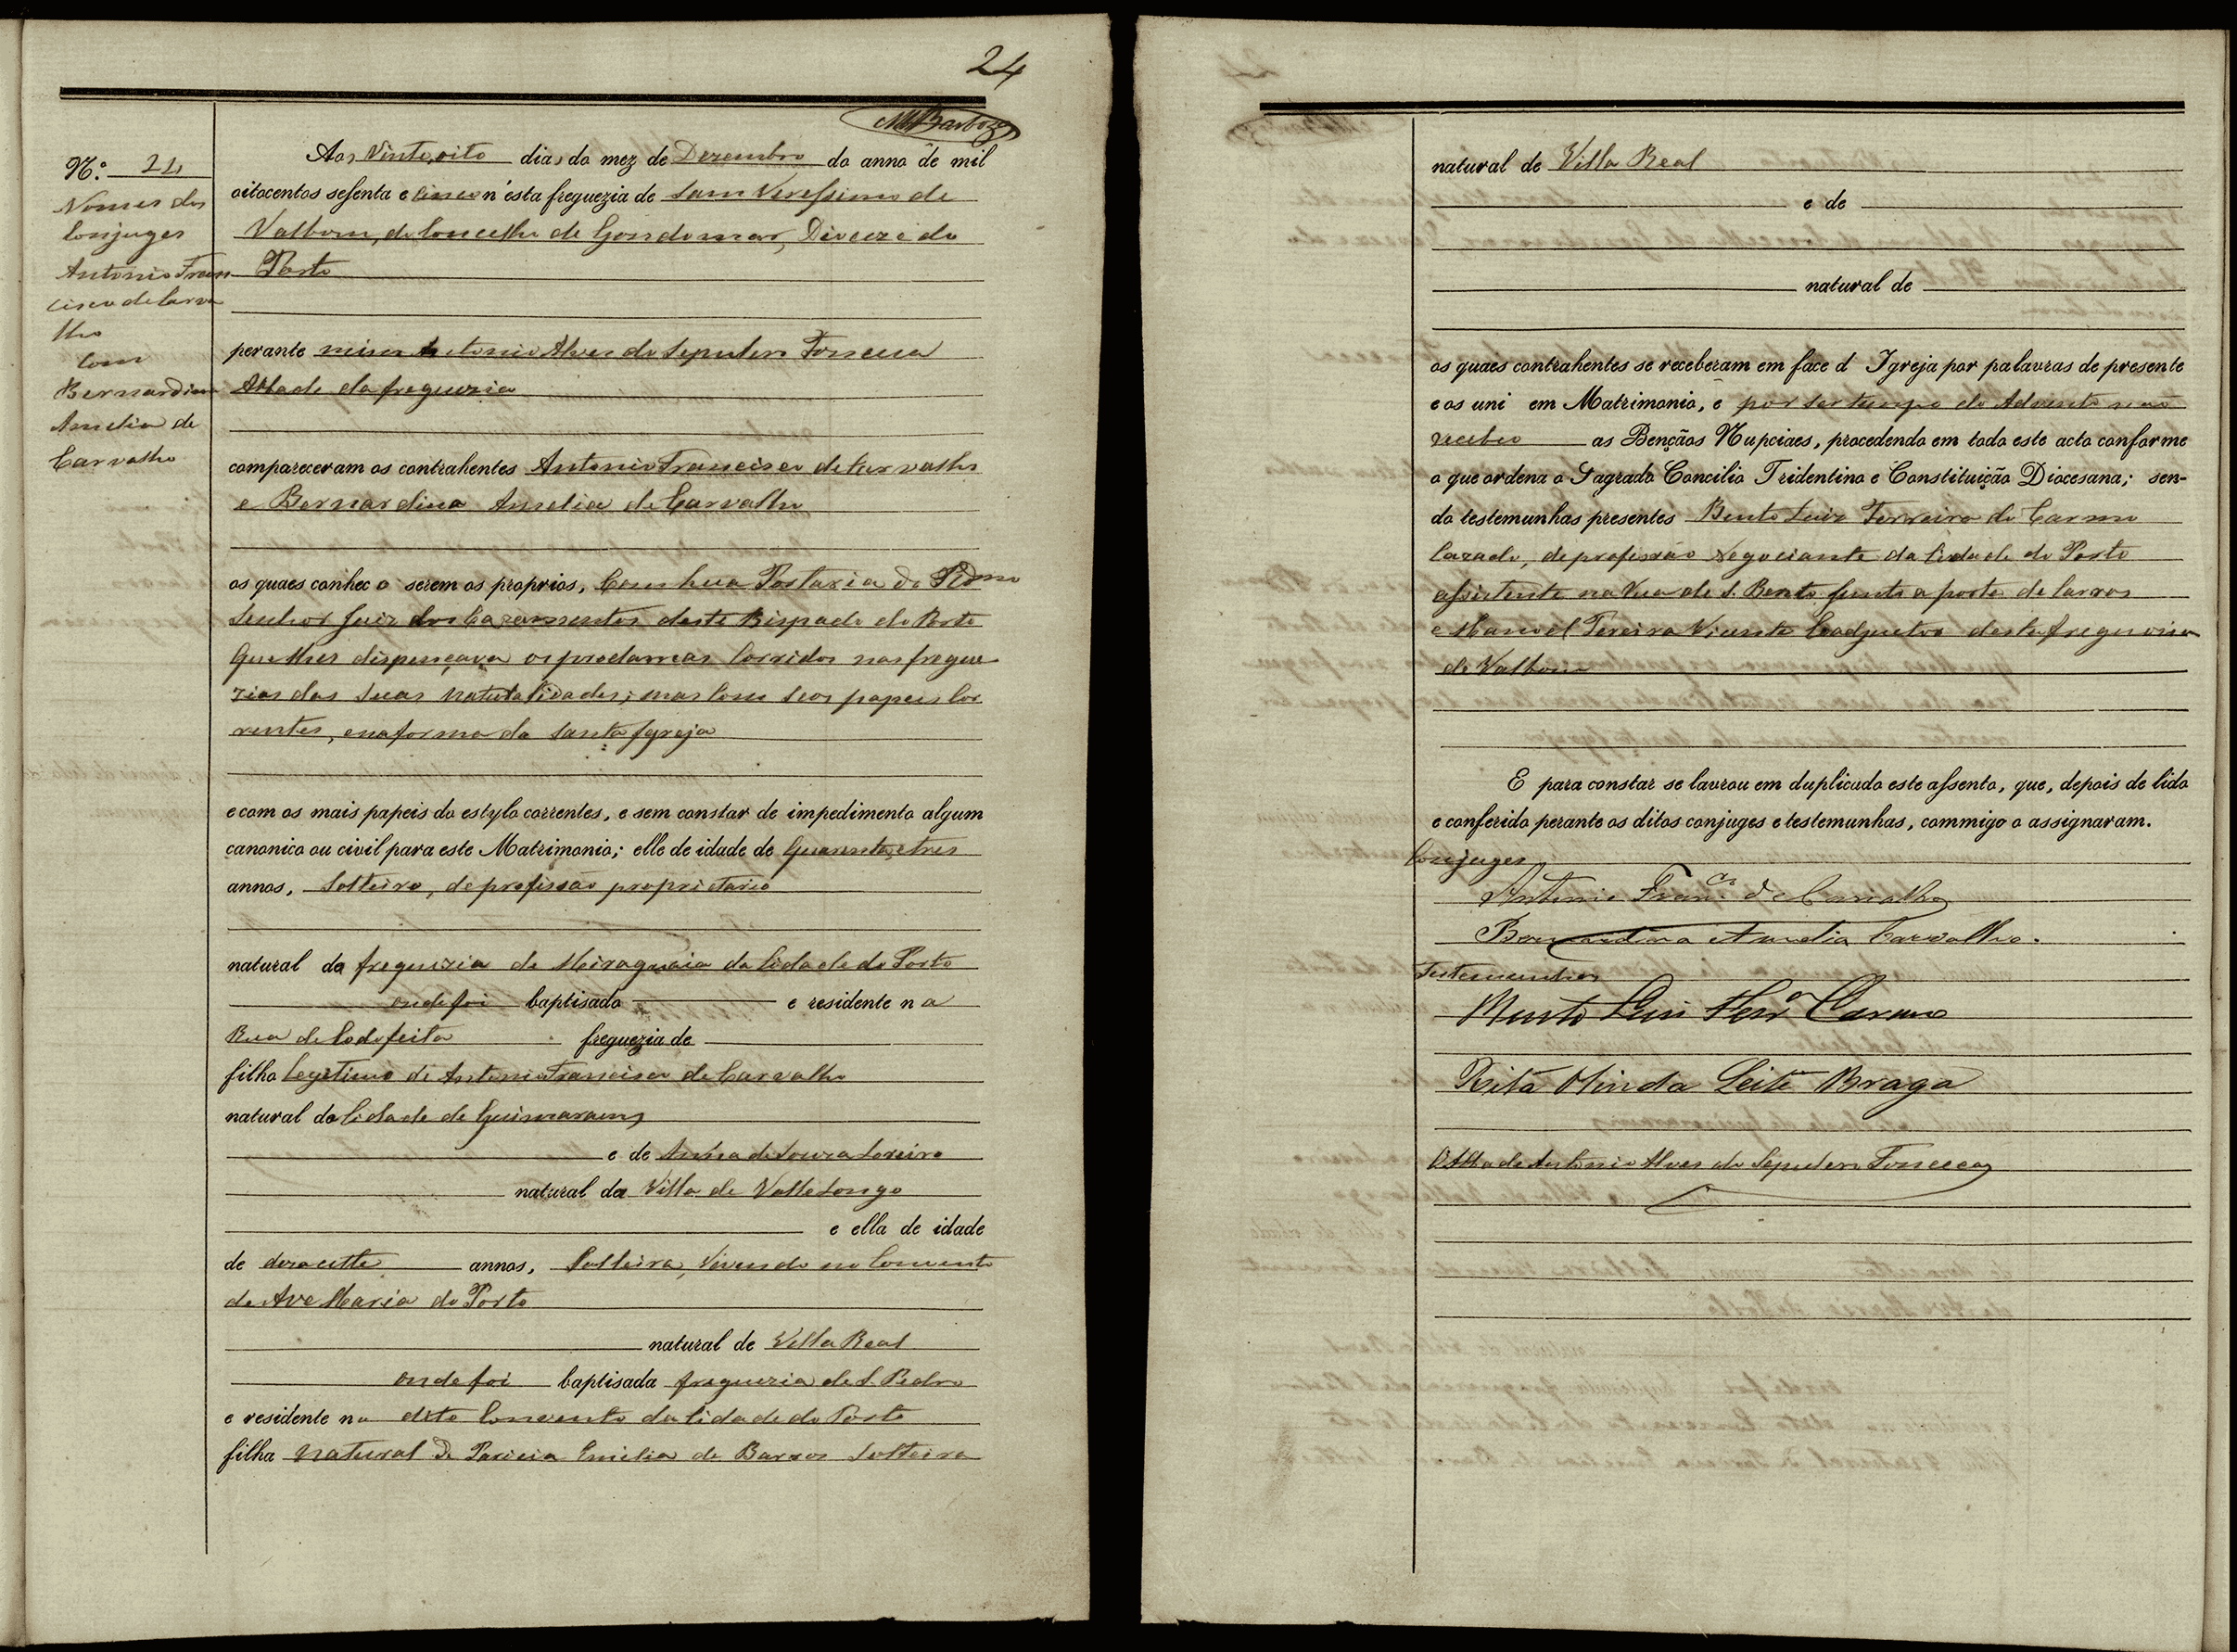 24
MBarboza
N.º 24
Nomes dos
Conjuges
Antonio Fran
cisco de Carva
lho
Com
Bernardina
Amelia de
Carvalho
Aos Vinte oito dias do mez de Dezembro do anno de mil
oitocentos sessenta e cinco n'esta freguezia de Sam Verissimo de
Valbom, do Concelho de Gondomar, Dioceze do
Porto
perante mim Antonio Alves do Fonceca
Abbade da freguezia
compareceram os contrahentes Antonio Francisco de Carvalho
e Bernardina Amelia de Carvalho
os quaes conheco serem os proprios, Com hua Portaria do
Senhor Juiz dos Cazamentos deste Bispado do Porto
que lhes dispençava os proclamas Corridos nas fregue
zias das suas naturalidades; mas com seos papeis cor
rentes, e na forma da Santa Igreja
e com os mais papeis do estylo correntes, e sem constar de impedimento algum
canonico ou civil para este Matrimonio; elle de idade de Quarenta e tres
annos, Solteiro, de profissão proprietario
natural da freguezia de Miragaia da Cidade do Porto
onde foi baptisado e residente na
Rua de Cedofeita freguezia de
filho legitimo de Antonio Francisco de Carvalho
natural da Cidade de Guimaraens
e de Anna de Souza Loreiro
natural da Villa de Vallelongo
e ella de idade
de dezasette annos, Solteira, Vivendo no Convento
de Ave Maria do Porto
natural de Villa Real
onde foi baptisada freguezia de S. Pedro
e residente no dito Convento da Cidade do Porto
filha natural de Emilia de Barros Solteira
natural de Villa Real
e de
natural de
os quaes contrahentes se receberam em face d Igreja por palavras de presente
e os uni em Matrimonio, e por ser tempo do Advento não
recebeo as Bençãos Nupciaes, procedendo em todo este acto conforme
o que ordena o Sagrado Concilio Tridentino e Constituição Diocesana; sen-
do testemunhas presentes Bento Luiz Ferreira do Carmo
Cazado, de profissão Negociante da Cidade do Porto
assistente na Rua de S. Bento junto a porta de Carros
e Manoel Pereira Vicente Coadjuctor desta freguezia
de Valbom
E para constar se lavrou em duplicado este assento, que, depois de lido
e conferido perante os ditos conjuges e testemunhas, commigo o assignaram.
Conjuges
Antonio Franco de Carvalho
Bernardina Amelia Carvalho.
Testemunhas
Bento Luis Ferra Carmo
Rita Olinda Leite Braga
O Abbade Antonio Alves do Fonceca